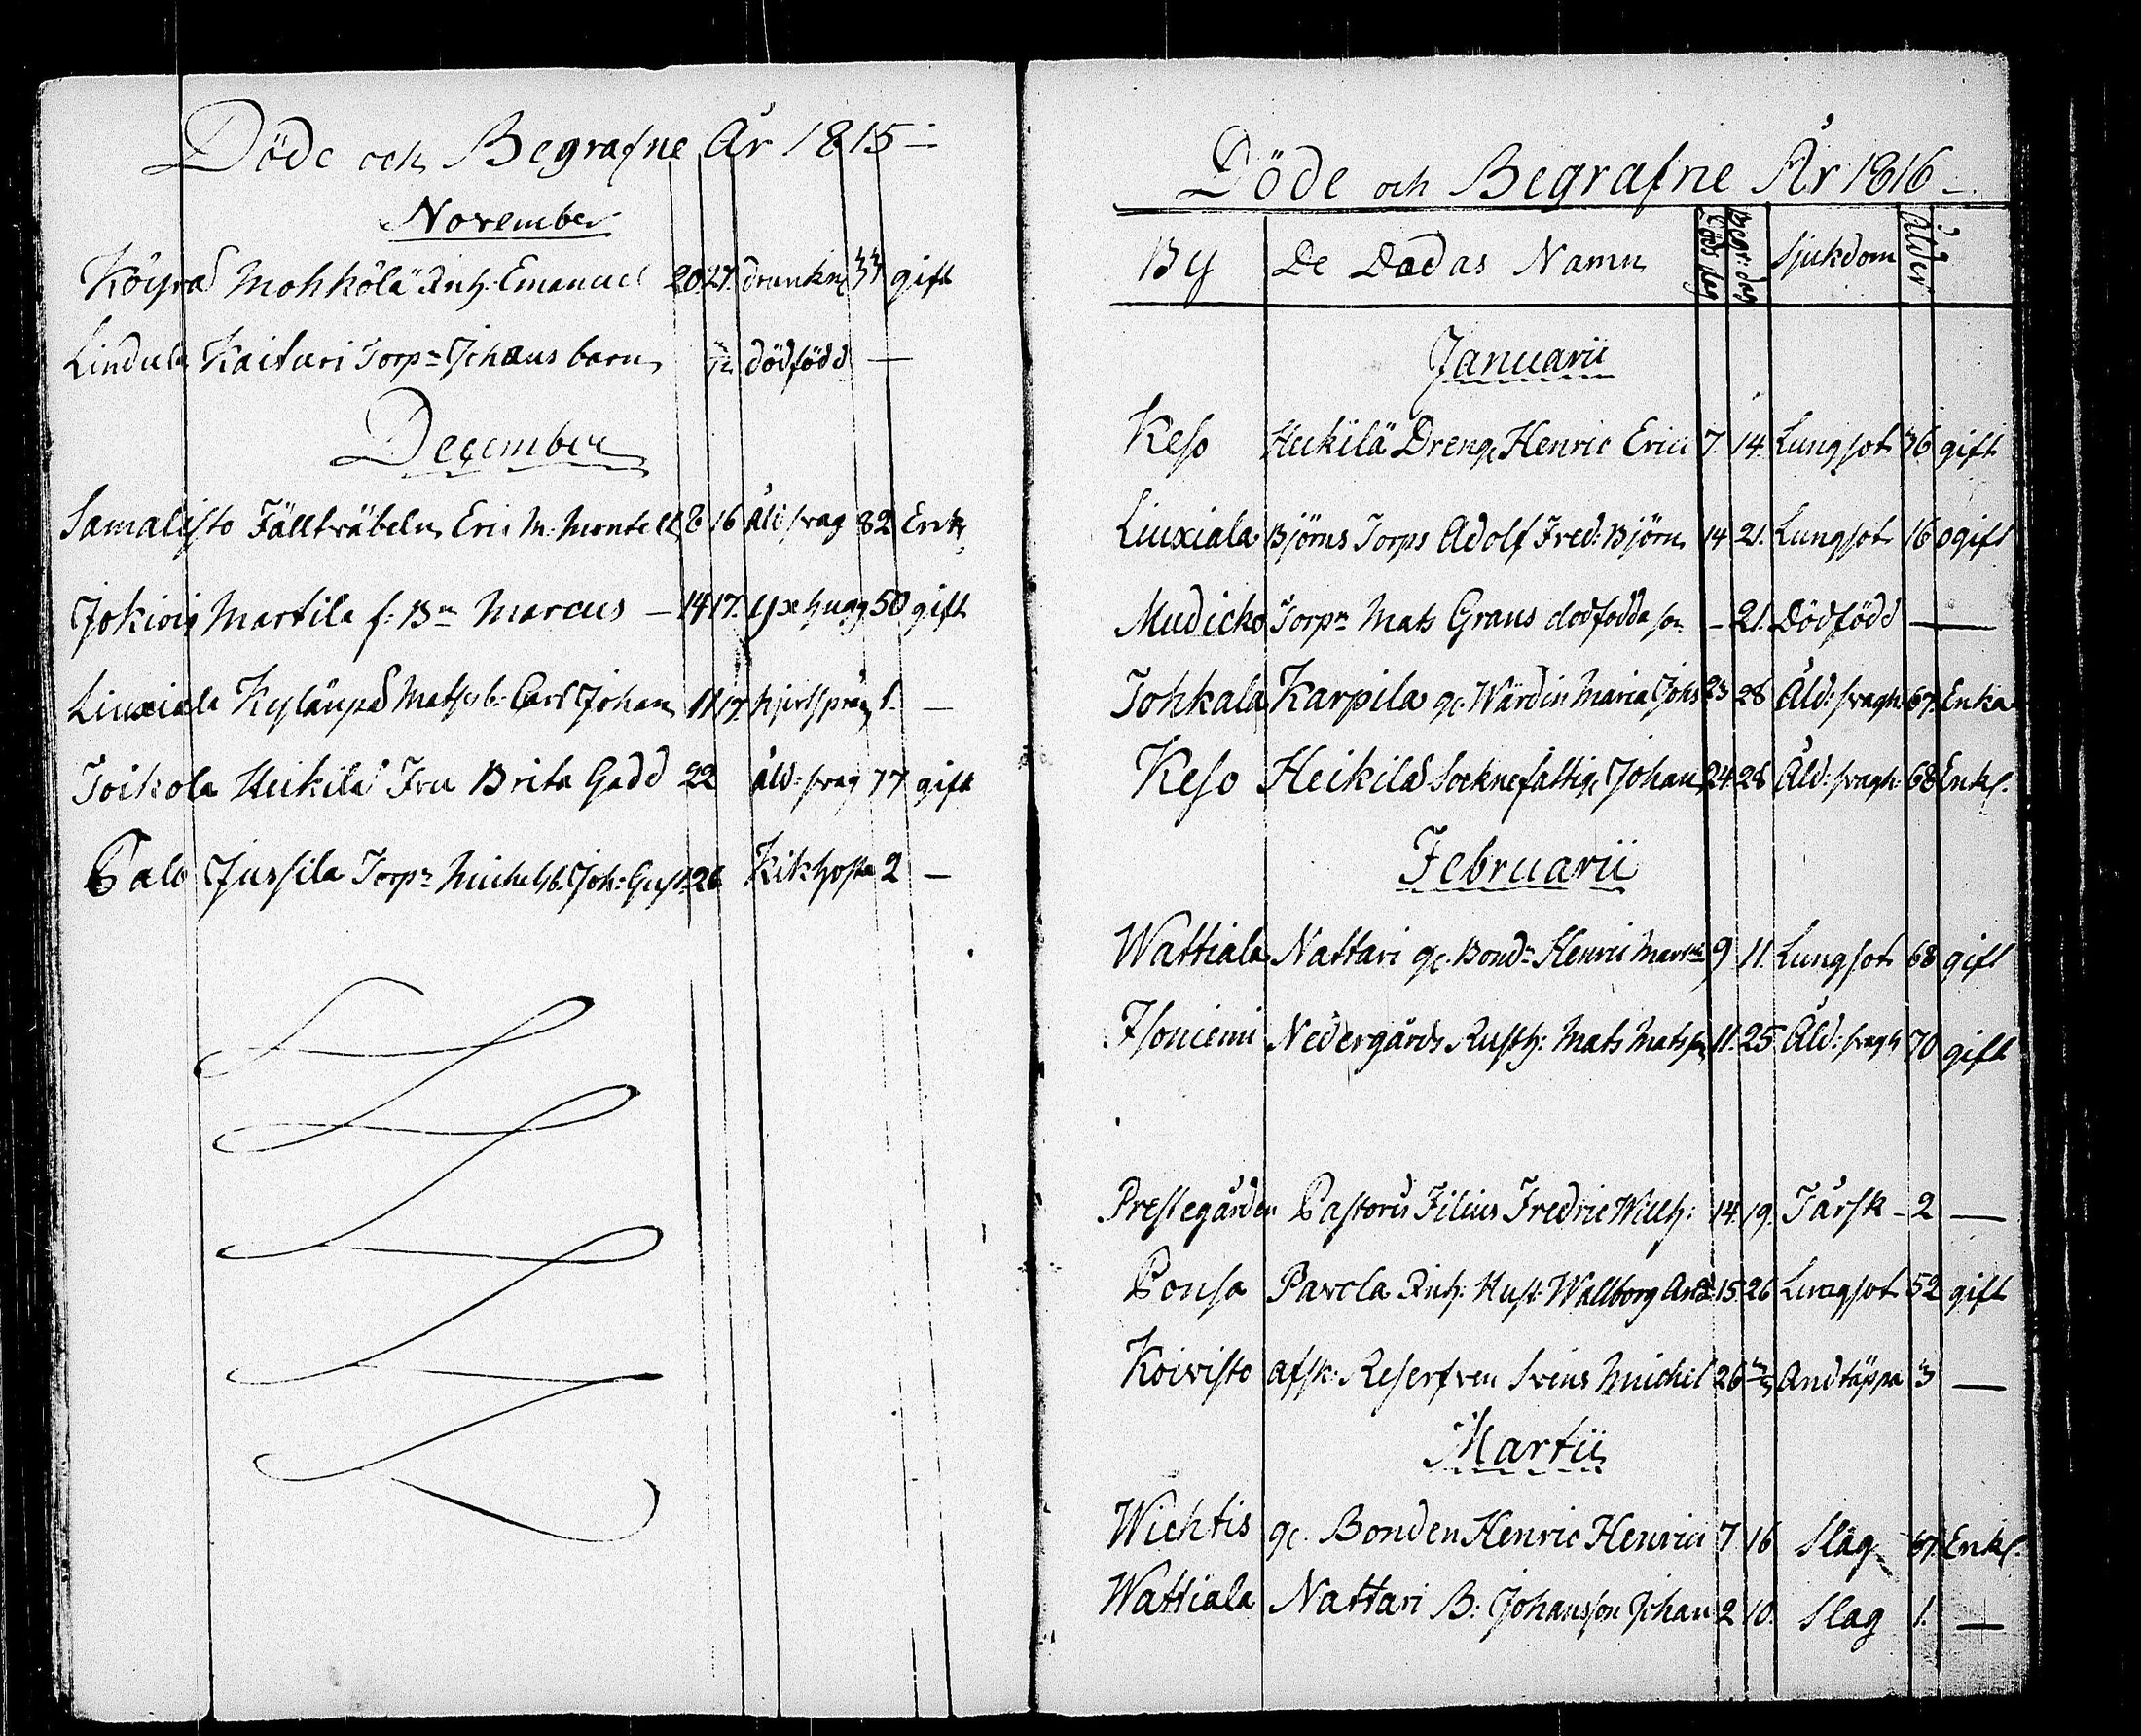 Döde och Begrafne År 1815
November
Köyrä Mohkölä Inh: Emanuel 20. 27. drunkn 33 gift
Lindula Kaituri Torp:n Johans barn dödfödd —
December
Samalisto Fältwäbeln Eric M. Montell 8 16 Åld: swag 82 Enk
Jokiois Martila f: B:n Marcus — 14 17. Yxhugg 50 gift
Liuxiala Kylänpä Mats s b: Carl Johan 11 17. hjertspräng 1. —
Toikola Heikilä Fru Brita Gadd 22 åld: swag 77 gift
Palo Jussila Torp:n Michels b. Joh: Gust: 26 Kikhosta 2 —
Döde och Begrafne År 1816
By De Dödas Namn Död dag Begr: dag Sjukdom Ålder
Januarii
Keso Heikilä Dreng Henric Erici 7. 14. Lungsot 36 gift
Liuxiala Björns Torps Adolf Fred: Björn 14 21. Lungsot 16 ogift
Mudicko Torp:n Mats Grans dödfödda son — 21. Dödfödd —
Tohkala Karpila gl. Wärdin Maria Johs 23 28 Åld: swagh: 67. Enka
Keso Heikilä Socknefattig Johan 24. 28 Åld: swagh: 68 Enkl.
Februarii
Wattiala Nattari gl. Bond:n Henric Mart:n 9 11. Lungsot 68 gift
Isoniemi Nedergårds Rusth: Mats Matss:n 11. 25 Åld: swagh 70 gift
Prestegården Pastoris Filius Fredric Wilh: 14. 19. Tärsk — 2 —
Pousa Pavola Inh: Hust: Wallborg And: 15. 26 Lungsot 52 gift
Koivisto afsk: Reserfven Svens Michel 26 3/3 Andtäppa 3 —
Martii
Wichtis gl. Bonden Henric Henrici 7 16 Slag 67. Enkl.
Wattiala Nattari B: Johansson Johan 2 10. Slag 1. —